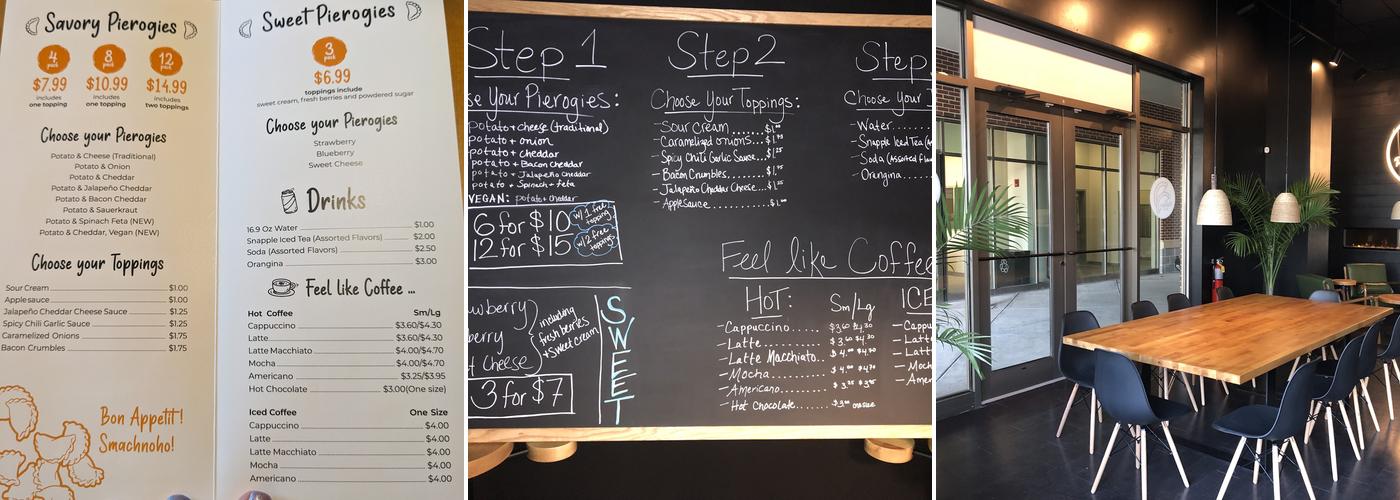 Savory Pierogies
4 pack
8 pack
12 pack
$7.99
$10.99
$14.99
includes one topping
includes one topping
includes two toppings
Choose your Pierogies
Potato & Cheese (Traditional)
Potato & Onion
Potato & Cheddar
Potato & Jalapeño Cheddar
Potato & Bacon Cheddar
Potato & Sauerkraut
Potato & Spinach Feta (NEW)
Potato & Cheddar, Vegan (NEW)
Choose your Toppings
Sour Cream $1.00
Applesauce $1.00
Jalapeño Cheddar Cheese Sauce $1.25
Spicy Chili Garlic Sauce $1.25
Caramelized Onions $1.75
Bacon Crumbles $1.75
Bon Appetit!
Smachnoho!
Sweet Pierogies
3 pack
$6.99
toppings include
sweet cream, fresh berries and powdered sugar
Choose your Pierogies
Strawberry
Blueberry
Sweet Cheese
Drinks
16.9 Oz Water $1.00
Snapple Iced Tea (Assorted Flavors) $2.00
Soda (Assorted Flavors) $2.50
Orangina $3.00
Feel like Coffee ...
Hot Coffee Sm/Lg
Cappuccino $3.60/$4.30
Latte $3.60/$4.30
Latte Macchiato $4.00/$4.70
Mocha $4.00/$4.70
Americano $3.25/$3.95
Hot Chocolate $3.00(One size)
Iced Coffee One Size
Cappuccino $4.00
Latte $4.00
Latte Macchiato $4.00
Mocha $4.00
Americano $4.00
Step 1
Your Pierogies:
potato + cheese (traditional)
potato + onion
potato + cheddar
potato + Bacon Cheddar
potato + Jalapeño Cheddar
potato + Spinach + feta
VEGAN: potato + Cheddar
6 for $10 w/ 1 free topping
12 for $15 w/ 2 free toppings
including fresh berries + Sweet cream
Cheese
3 for $7
SWEET
Step 2
Choose Your Toppings:
- Sour Cream ....... $1.00
- Caramelized onions... $1.75
- Spicy Chili Garlic Sauce... $1.25
- Bacon Crumbles....... $1.75
- Jalapeño Cheddar Cheese... $1.25
- Apple Sauce ........... $1.00
Step
Choose Your
- Water.......
- Snapple Iced Tea
- Soda (Assorted
- Orangina.....
Feel like Coffee
HOT: Sm/Lg
- Cappuccino...... $3.60 $4.30
- Latte........... $3.60 $4.30
- Latte Macchiato.. $4.00 $4.70
- Mocha.......... $4.00 $4.70
- Americano....... $3.25 $3.95
- Hot Chocolate..... $3.00 one size